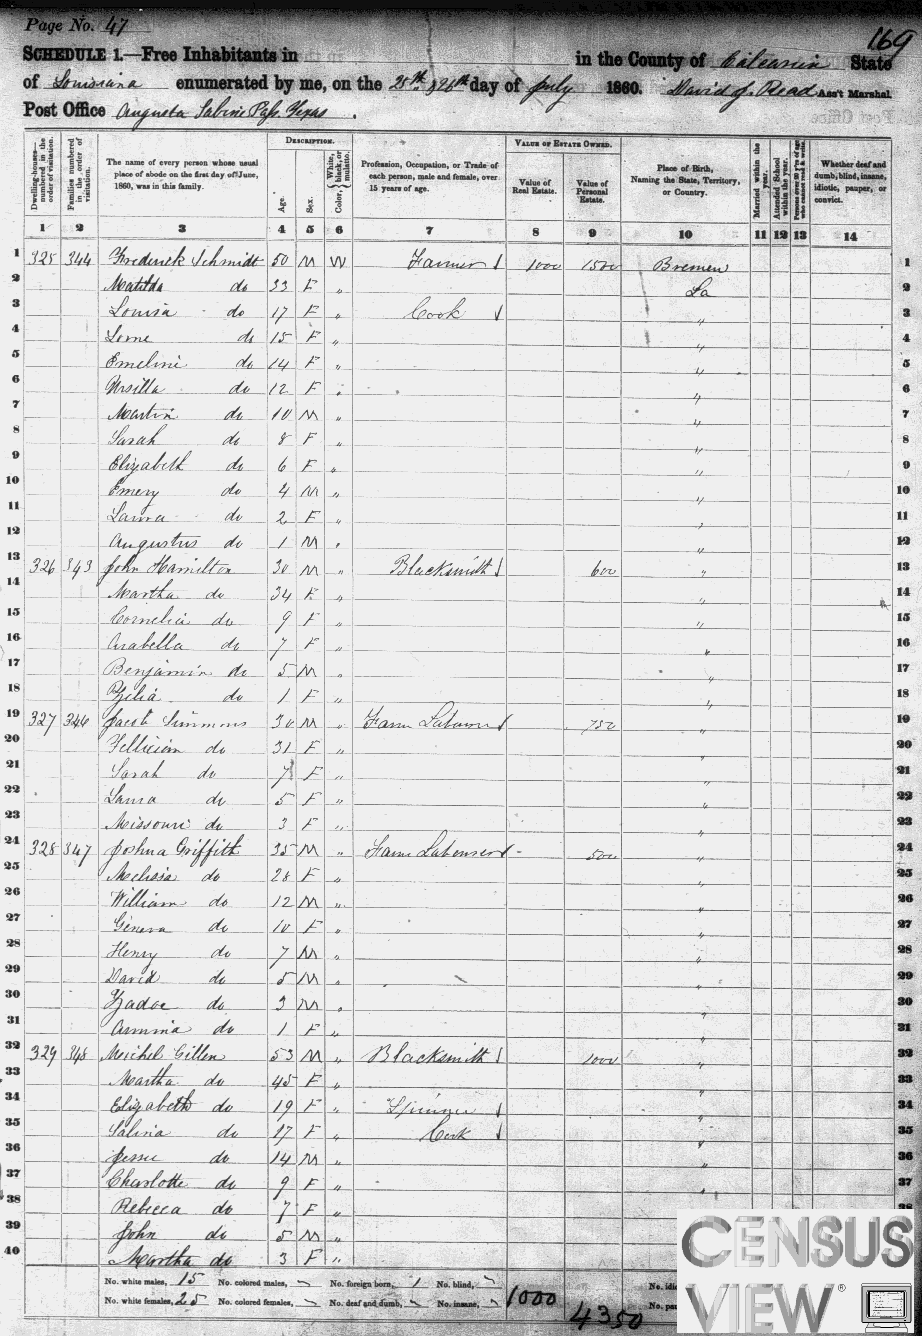 Page No. 47
169
SCHEDULE 1.—Free Inhabitants in in the County of Calcasieu State
of Louisiana enumerated by me, on the 25th & 26th day of July 1860. David J. Read Ass't Marshal
Post Office Augusta Sabine Pass Texas.
DESCRIPTION. VALUE OF ESTATE OWNED.
Dwelling-houses— numbered in the order of visitation. Families numbered in the order of visitation. The name of every person whose usual place of abode on the first day of June, 1860, was in this family. Age. Sex. Color, White, black, or mulatto. Profession, Occupation, or Trade of each person, male and female, over 15 years of age. Value of Real Estate. Value of Personal Estate. Place of Birth, Naming the State, Territory, or Country. Married within the year. Attended School within the year. Persons over 20 y'rs of age who cannot read & write. Whether deaf and dumb, blind, insane, idiotic, pauper, or convict.
1 2 3 4 5 6 7 8 9 10 11 12 13 14
1 325 344 Frederick Schmidt 50 M W Farmer 1000 1500 Bremen 1
2 Matilda do 33 F " La 2
3 Louisa do 17 F " Cook " 3
4 do 15 F " " 4
5 Emeline do 14 F " " 5
6 Ursilla do 12 F " " 6
7 Martin do 10 M " " 7
8 Sarah do 8 F " " 8
9 Elizabeth do 6 F " " 9
10 Emery do 4 M " " 10
11 Laura do 2 F " " 11
12 Augustus do 1 M " " 12
13 326 343 John Hamilton 30 M " Blacksmith 600 " 13
14 Martha do 34 F " " 14
15 Cornelia do 9 F " " 15
16 Arabella do 7 F " " 16
17 Benjamin do 5 M " " 17
18 Zelia do 1 F " " 18
19 327 346 Jacob Simmons 30 M " Farm Laborer 750 " 19
20 do 31 F " " 20
21 Sarah do 7 F " " 21
22 Laura do 5 F " " 22
23 Missouri do 3 F " " 23
24 328 347 Joshua Griffith 35 M " Farm Laborer - 500 " 24
25 Melissa do 28 F " " 25
26 William do 12 M " " 26
27 Geneva do 10 F " " 27
28 Henry do 7 M " " 28
29 David do 5 M " " 29
30 Zadoc do 3 M " " 30
31 do 1 F " " 31
32 329 348 Meichel Gillen 53 M " Blacksmith 1000 " 32
33 Martha do 45 F " " 33
34 Elizabeth do 19 F " " 34
35 Salina do 17 F " Cook " 35
36 Jessie do 14 M " " 36
37 Charlotte do 9 F " " 37
38 Rebecca do 7 F " 38
39 John do 5 M "
40 Martha do 3 F "
No. white males, 15 No. colored males, – No. foreign born, 1 No. blind, – No. idio
No. white females, 25 No. colored females, – No. deaf and dumb, – No. insane, – 1000 4350 No. pau
CENSUS
VIEW®